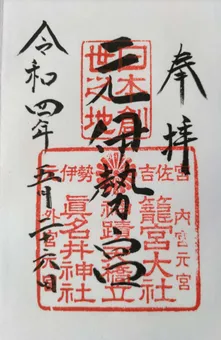 奉拝
日本創
世之地
元伊勢宮
伊勢 吉佐宮
内宮元宮
籠宮大社
神蹟天橋立
眞名井神社
外宮元宮
令和四年
五月二十六日